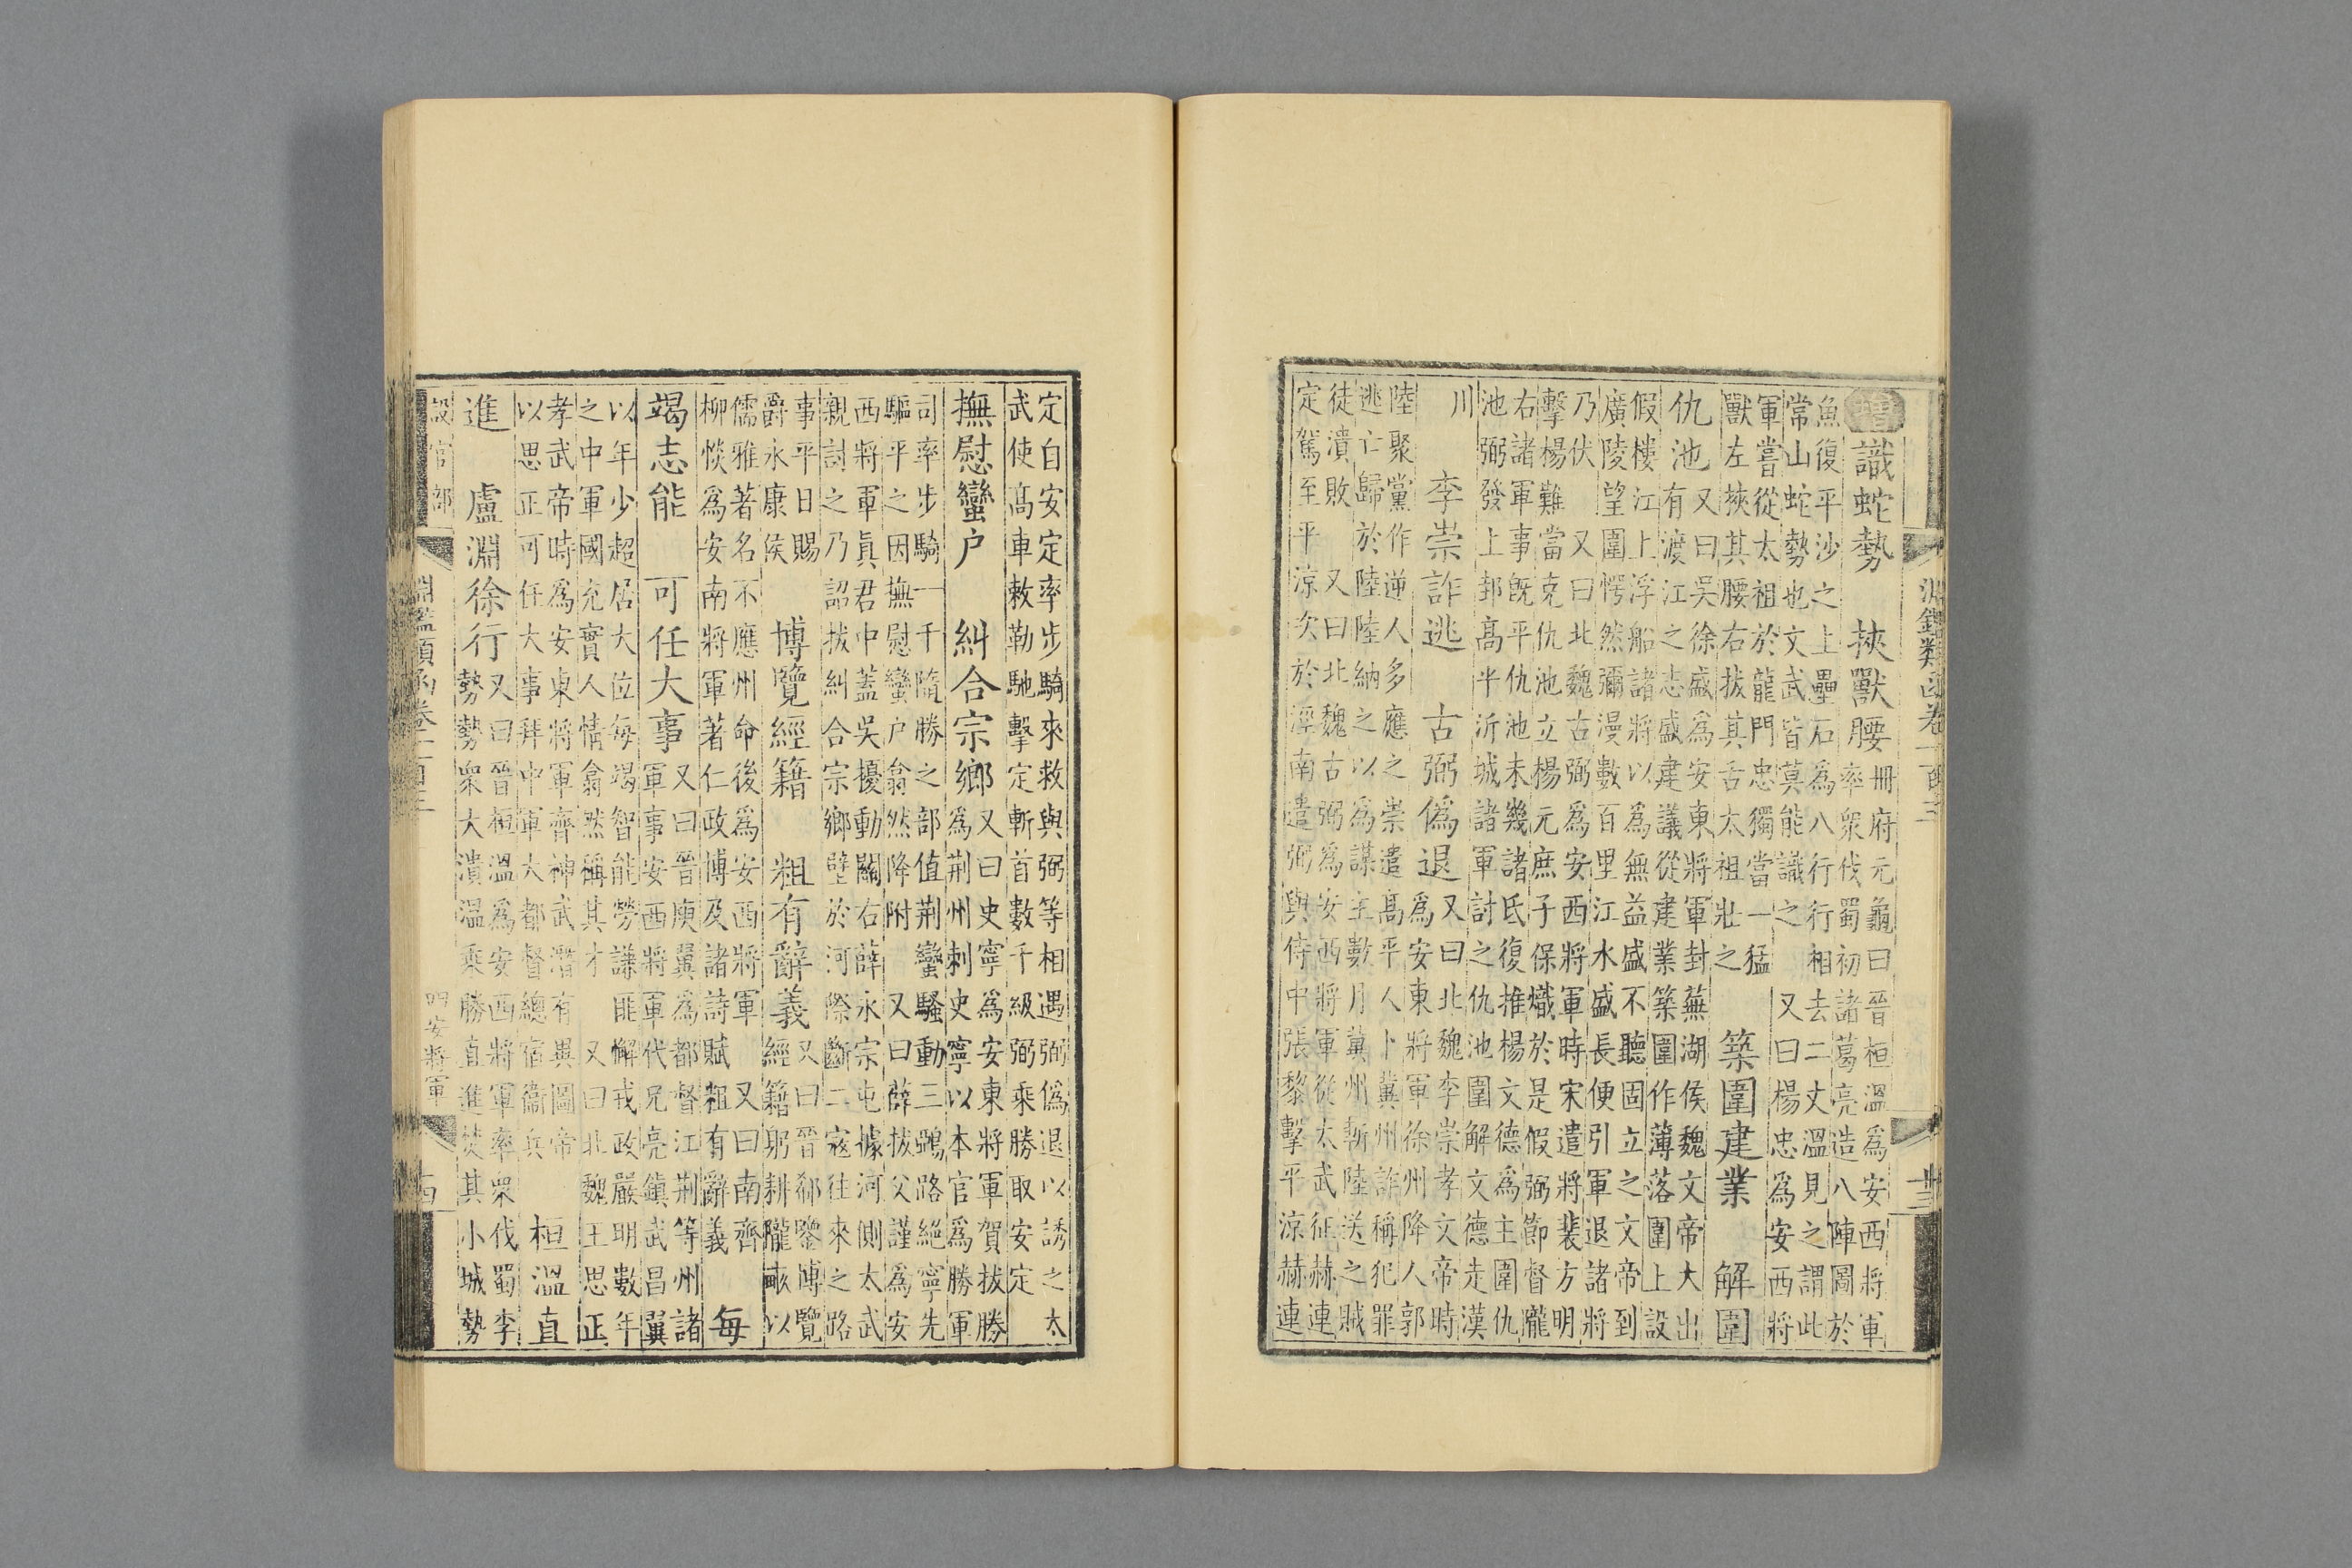 淵鑑類函卷一百三
廿三
增 識蛇勢 挾獸腰 冊府元龜曰晉桓溫為安西將軍
率衆伐蜀初諸葛亮造八陣圖於
魚復平沙之上壘石為八行行相去二丈溫見之謂此
常山蛇勢也文武皆莫能識之 又曰楊忠為安西將
軍嘗從太祖於龍門忠獨當一猛
獸左挾其腰右拔其舌太祖壯之
築圍建業 解圍
仇池 又曰吳徐盛為安東將軍封蕪湖侯魏文帝大出
有渡江之志盛建議從建業築圍作薄落圍上設
假樓江上浮船諸將以為無益盛不聽固立之文帝到
廣陵望圍愕然彌漫數百里江水盛長便引軍退諸將
乃伏 又曰北魏古弼為安西將軍時宋遣將裴方明
擊楊難當克仇池立楊元庶子保熾於是假弼節督隴
右諸軍事旣平仇池未幾諸氐復推楊文德為主圍仇
池弼發上邽高平沂城諸軍討之仇池圍解文德走漢
川 李崇詐逃 古弼偽退 又曰北魏李崇孝文帝時
為安東將軍徐州降人郭
陸聚黨作逆人多應之崇遣高平人卜冀州詐稱犯罪
逃亡歸於陸陸納之以為謀主數月冀州斬陸送之賊
徒潰敗 又曰北魏古弼為安西將軍從太武征赫連
定駕至平涼次於涇南遣弼與侍中張黎擊平涼赫連
定自安定率步騎來救與弼等相遇弼偽退以誘之太
武使高車敕勒馳擊定斬首數千級弼乘勝取安定
撫慰蠻户 糾合宗鄉 又曰史寧為安東將軍賀拔勝
為荆州刺史寧以本官為勝軍
司率步騎一千隨勝之部值荆蠻騷動三鵶路絕寧先
驅平之因撫慰蠻户翕然降附 又曰薛拔父謹為安
西將軍真君中蓋吳擾動關右薛永宗屯據河側太武
親討之乃詔拔糾合宗鄉壁於河際斷二寇往來之路
事平日賜
爵永康侯
博覽經籍 粗有辭義 又曰晉郗鑒博覽
經籍躬耕隴畝以
儒雅著名不應州命後為安西將軍 又曰南齊
柳惔為安南將軍著仁政博及諸詩賦粗有辭義
每
竭志能 可任大事 又曰晉庾翼為都督江荆等州諸
軍事安西將軍代兄亮鎮武昌翼
以年少超居大位每竭智能勞謙匪懈戎政嚴明數年
之中軍國充實人情翕然稱其才 又曰北魏王思正
孝武帝時為安東將軍齊神武潛有異圖帝
以思正可任大事拜中軍大都督總宿衞兵
桓溫直
進 盧淵徐行 又曰晉桓溫為安西將軍率衆伐蜀李
勢勢衆大潰溫乘勝直進焚其小城勢
設官部
淵鑑類函卷一百三
四安將軍